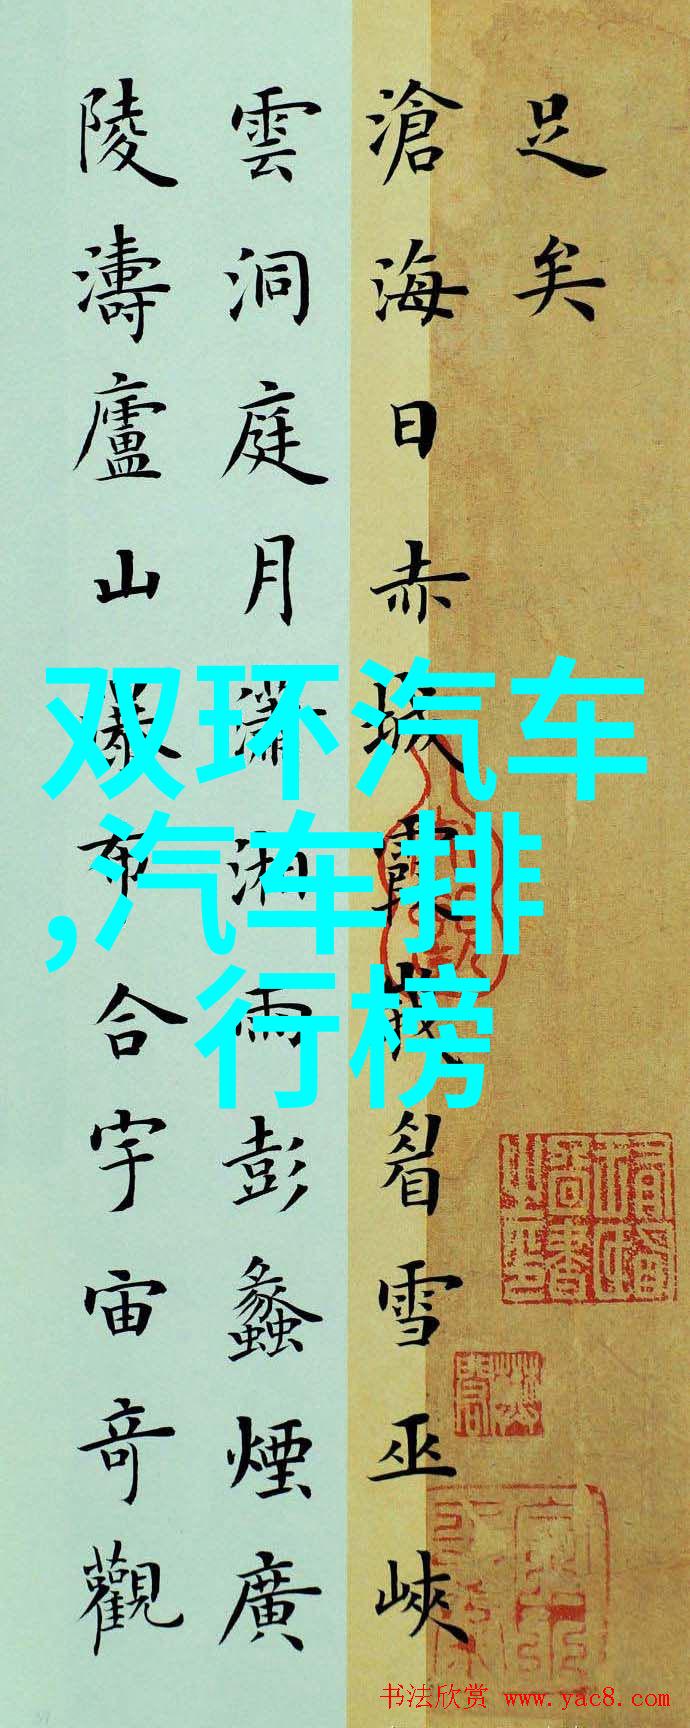 足矣
滄海日赤城霞峨眉雪巫峽
雲洞庭月瀟湘雨彭蠡煙廣
陵濤廬山瀑布合宇宙奇觀
双环汽车
,汽车排
行榜
书法欣赏 www.yac8.com